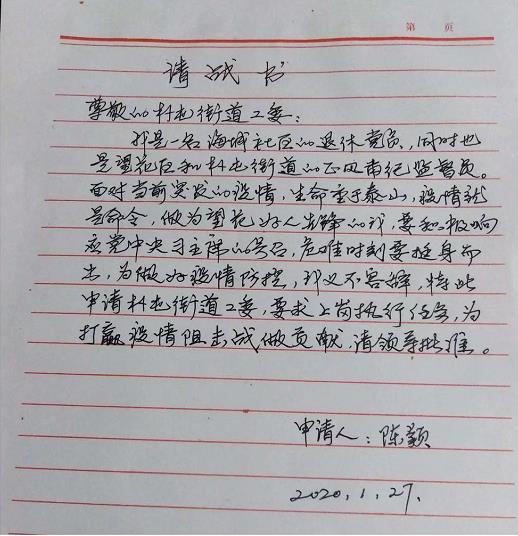 第 页
请战书
尊敬的朴屯街道工委：
我是一名海城社区的退休党员，同时也
是望花区和朴屯街道的正风肃纪监督员。
面对当前突发的疫情，生命重于泰山，疫情就
是命令，做为望花好人先锋的我，要积极响
应党中央习主席的号召，危难时刻要挺身而
出，为做好疫情防控，我义不容辞，特此
申请朴屯街道工委，要求上岗执行任务，为
打赢疫情阻击战做贡献，请领导批准。
申请人：陈颖
2020.1.27.